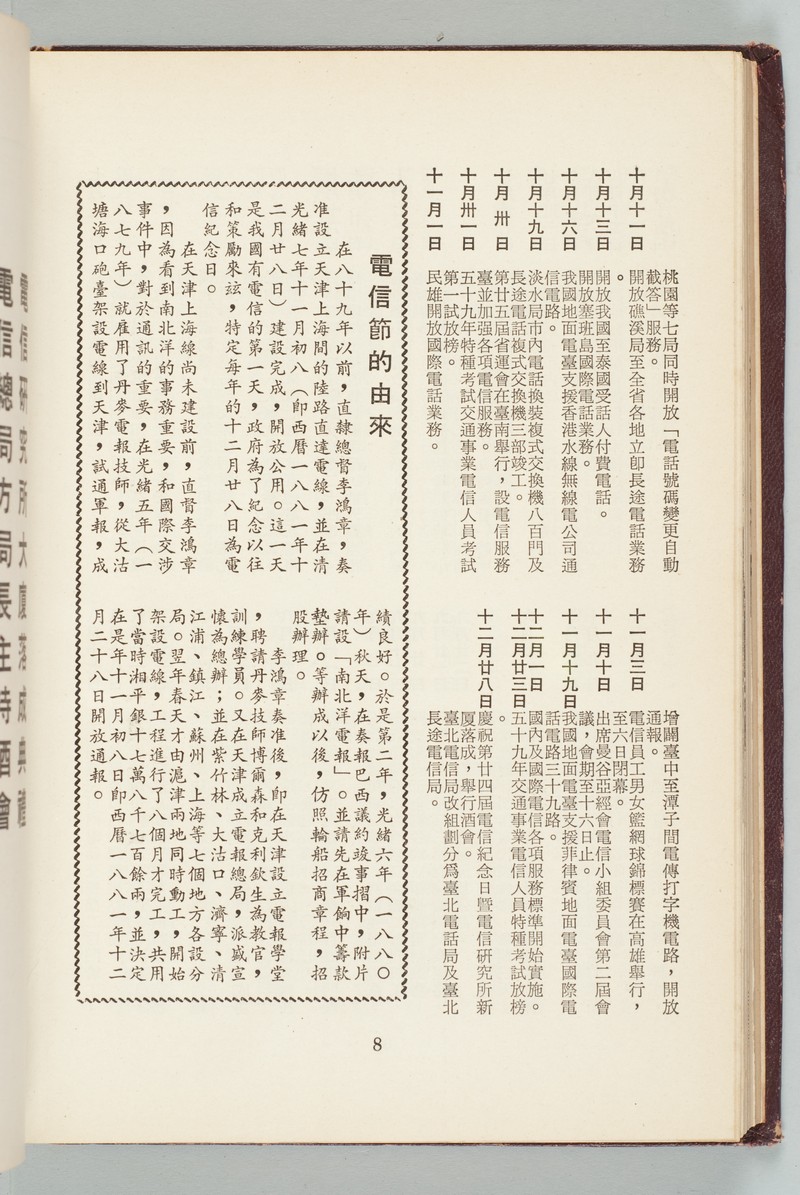 桃園等七局同時開放「電話號碼變更自動
截答」服務。
十月十一日
開放礁溪局至全省各地立卽長途電話業務
。
十月十三日
開放我國至泰國受話人付費電話。
開放塞班島國際電話業務。
十月十六日
我國地面電臺支援香港水線無線電公司通
信電路。
十月十九日
淡水局市內電話換裝複式交換機八百門及
長途電話複式交換機三部竣工。
十月卅日
第廿五屆省運會在臺南舉行，設電信服務
臺並加强各項電信服務。
十月卅一日
五十九年特種考試交通事業電信人員考試
第一試放榜。
十一月一日
民雄開放國際電話業務。
增闢臺中至潭子間電傳打字機電路，開放
通報。
十一月三日
電信員工男女籃網球錦標賽在高雄舉行，
至六日閉幕。
十一月十日
出席曼谷亞經會電信小組委員會第二屆會
議，會期至十六日止。
十一月十九日
我國地面電臺支援菲律賓地面電臺國際電
話電路三十九路。
十二月一日
國內及國際電信各項服務標準開始實施。
十二月廿三日
五十九年交通事業電信人員特種考試放榜
。
十二月廿八日
慶祝第廿四屆電信紀念日暨電信硏究所新
厦落成，舉行酒會。
臺北電信局改組劃分爲臺北電話局及臺北
長途電信局。
電信節的由來
在八十九年以前，直隸總督李鴻章，奏
准設立天津上海間的陸路直達電線，並在清
光緒七年十一月初八（卽西曆一八八一年十
二月廿八日）建設完成，開放公用。這一天
是我國有電信的第一天，政府為了紀念以往
和策勵來茲，特定每年的十二月廿八日為電
信紀念日。
在天津上海線尚未建設前，直督李鴻章
，因為看到南北洋的事務重要，和國際交涉
事件中，對於通訊的重要，在光緒五年（一
八七九年）就雇用了丹麥電報技師，從大沽
塘海口砲臺架設電線到天津，試通軍報，成
績良好。於是第二年，光緒六年（一八八〇
年）秋天，在奏報巴西議約竣事摺中，附片
請設「南北洋電報」。並請先在軍餉中籌款
墊辦。等辦成以後，仿照輪船招商章程，招
股辦理。
李鴻章奏准後，卽在天津設立電報學堂
，聘請丹麥技師博爾森和克利欽生為教官，
訓練學員。又在天津成立電報總局，派盛宣
懷為總辦；並在紫竹林、大沽口、濟寧、清
江浦、鎮江、蘇州、上海等七個地方各設分
局。翌年春天才由滬津兩地同時動工，開始
架設電線，工程進行了八個月才完工，共用
了當時湘平銀十七萬八千七百餘兩，並決定
在是年十一月初八日卽西曆一八八一年十二
月二十八日開放通報。
8
電信研究所大廈落成典禮
電信總局方局長主持酒會